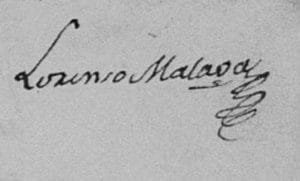 Lorenso Malava